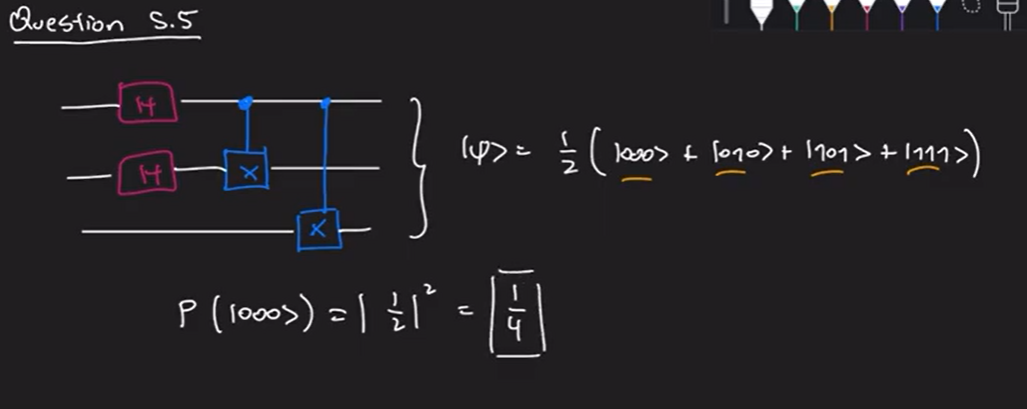 Question 5.5
H
|φ> = 1/2 ( |000> + |010> + |101> + |111> )
H X
X
P ( |000> ) = | 1/2 |² = 1/4